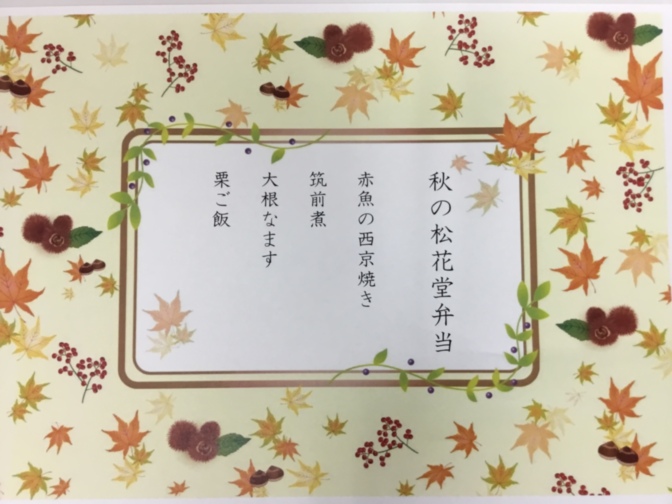 秋の松花堂弁当
赤魚の西京焼き
筑前煮
大根なます
栗ご飯